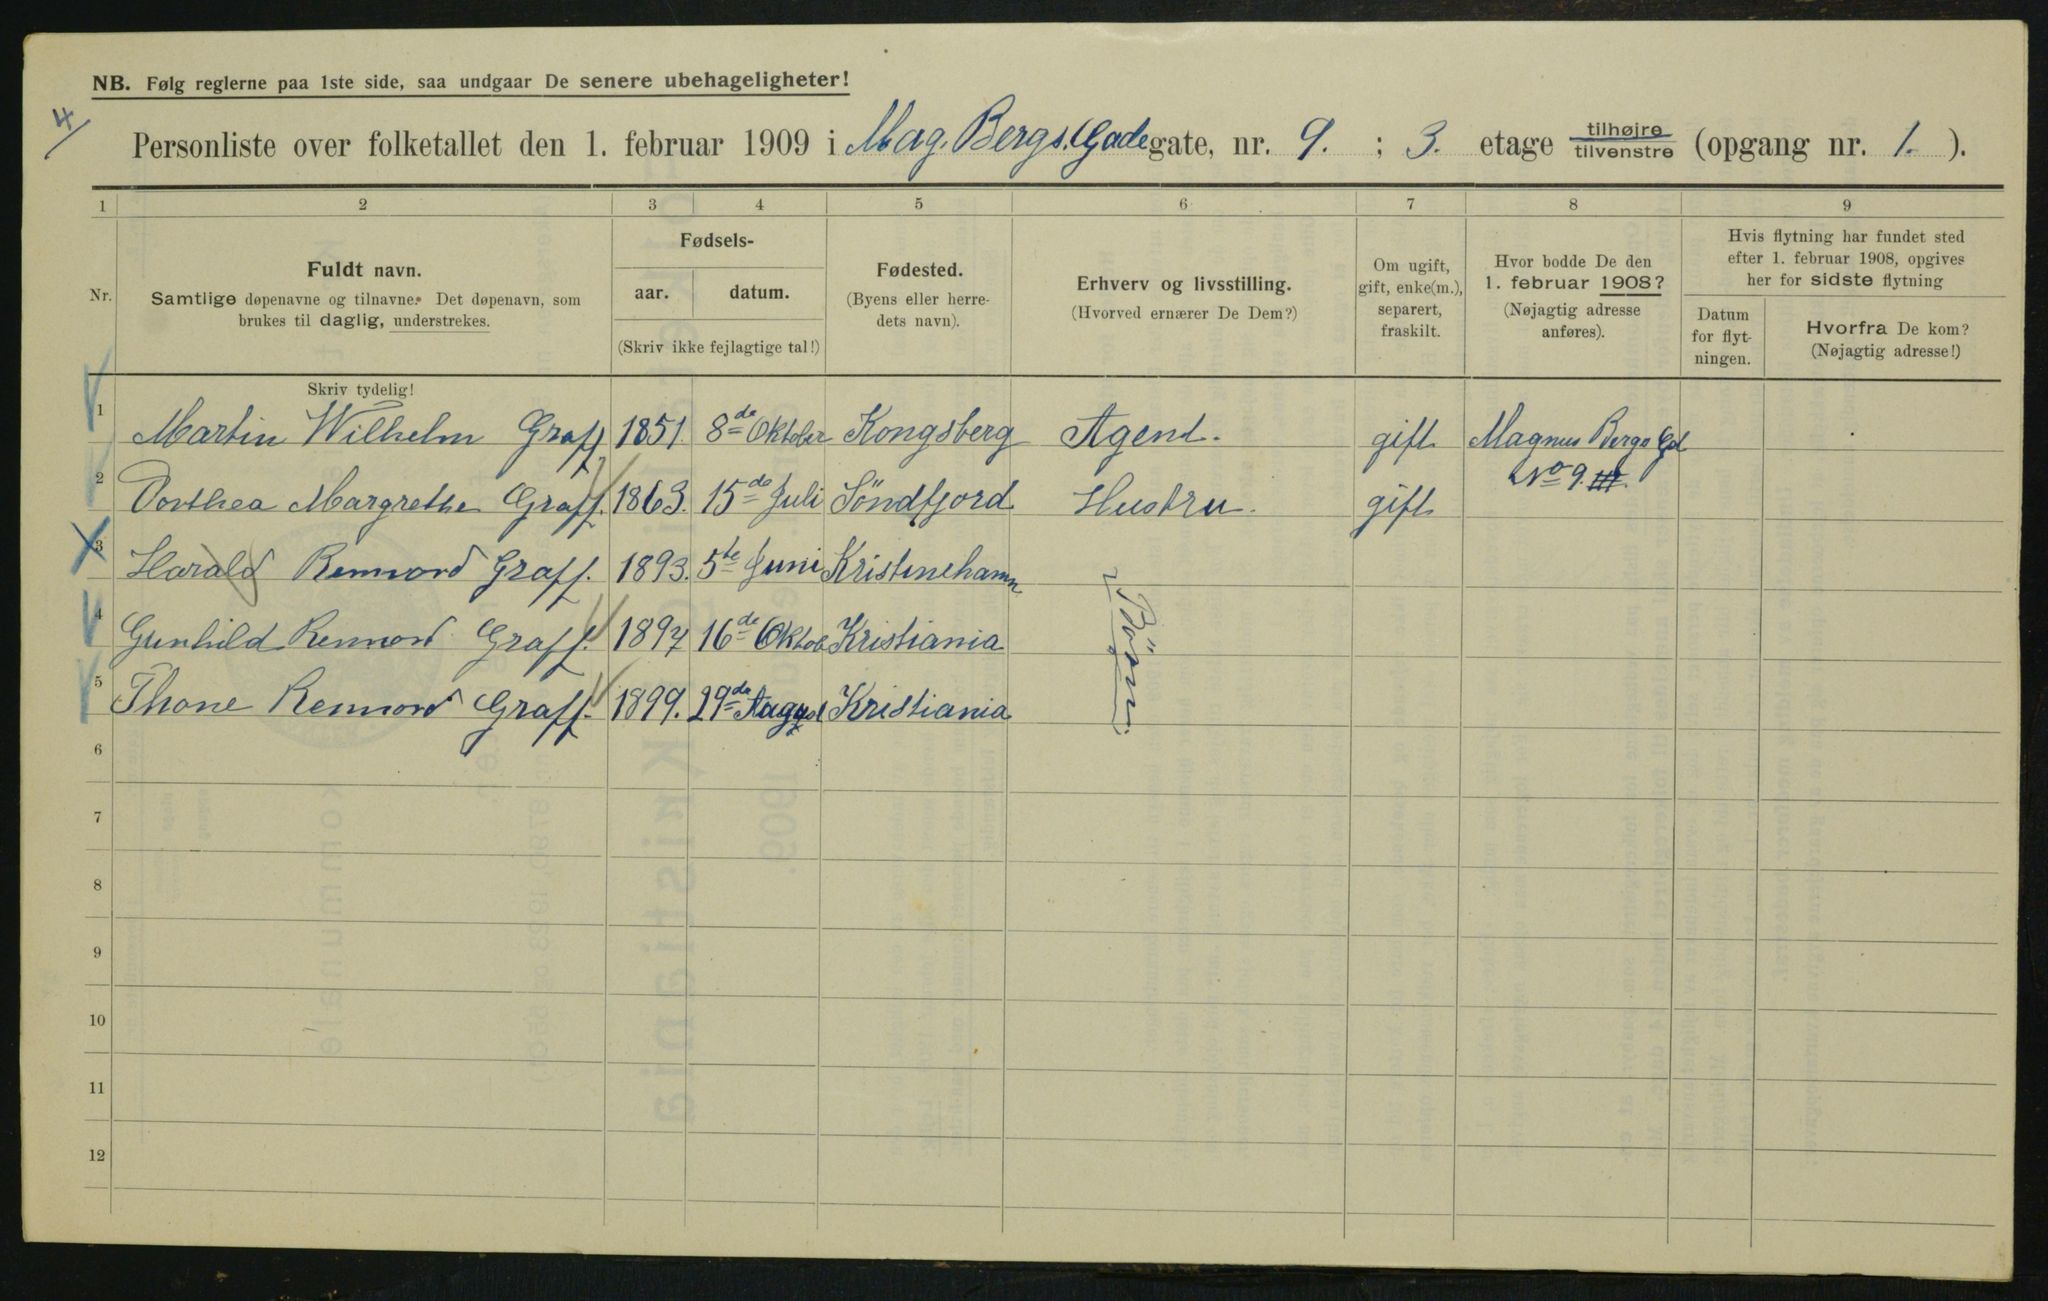 NB. Følg reglerne paa 1ste side, saa undgaar De senere ubehageligheter!
4/
Personliste over folketallet den 1. februar 1909 i Mag. Bergs. Gade gate, nr. 9. ; 3. etage tilhøjre tilvenstre (opgang nr. 1. ).
1 2 3 4 5 6 7 8 9
Nr.
Fuldt navn.
Samtlige døpenavne og tilnavne. Det døpenavn, som
brukes til daglig, understrekes.
Fødsels-
aar. datum.
(Skriv ikke fejlagtige tal!)
Fødested.
(Byens eller herre-
dets navn).
Erhverv og livsstilling.
(Hvorved ernærer De Dem?)
Om ugift,
gift, enke(m.),
separert,
fraskilt.
Hvor bodde De den
1. februar 1908?
(Nøjagtig adresse
anføres).
Hvis flytning har fundet sted
efter 1. februar 1908, opgives
her for sidste flytning
Datum
for flyt-
ningen.
Hvorfra De kom?
(Nøjagtig adresse!)
Skriv tydelig!
1 Martin Wilhelm Graff 1851. 8de Oktober Kongsberg Agent. gift Magnus Bergs Gd
No 9. III.
2 Dorthea Margrethe Graff. 1863. 15de Juli Söndfjord Hustru. gift
3 Harald Rennord Graff. 1893. 5te Juni Kristinehamn
4 Gunhild Rennord Graff. 1897 16de Oktob Kristiania
5 Thone Rennord Graff. 1899. 29de August Kristiania
Börn.
6
7
8
9
10
11
12